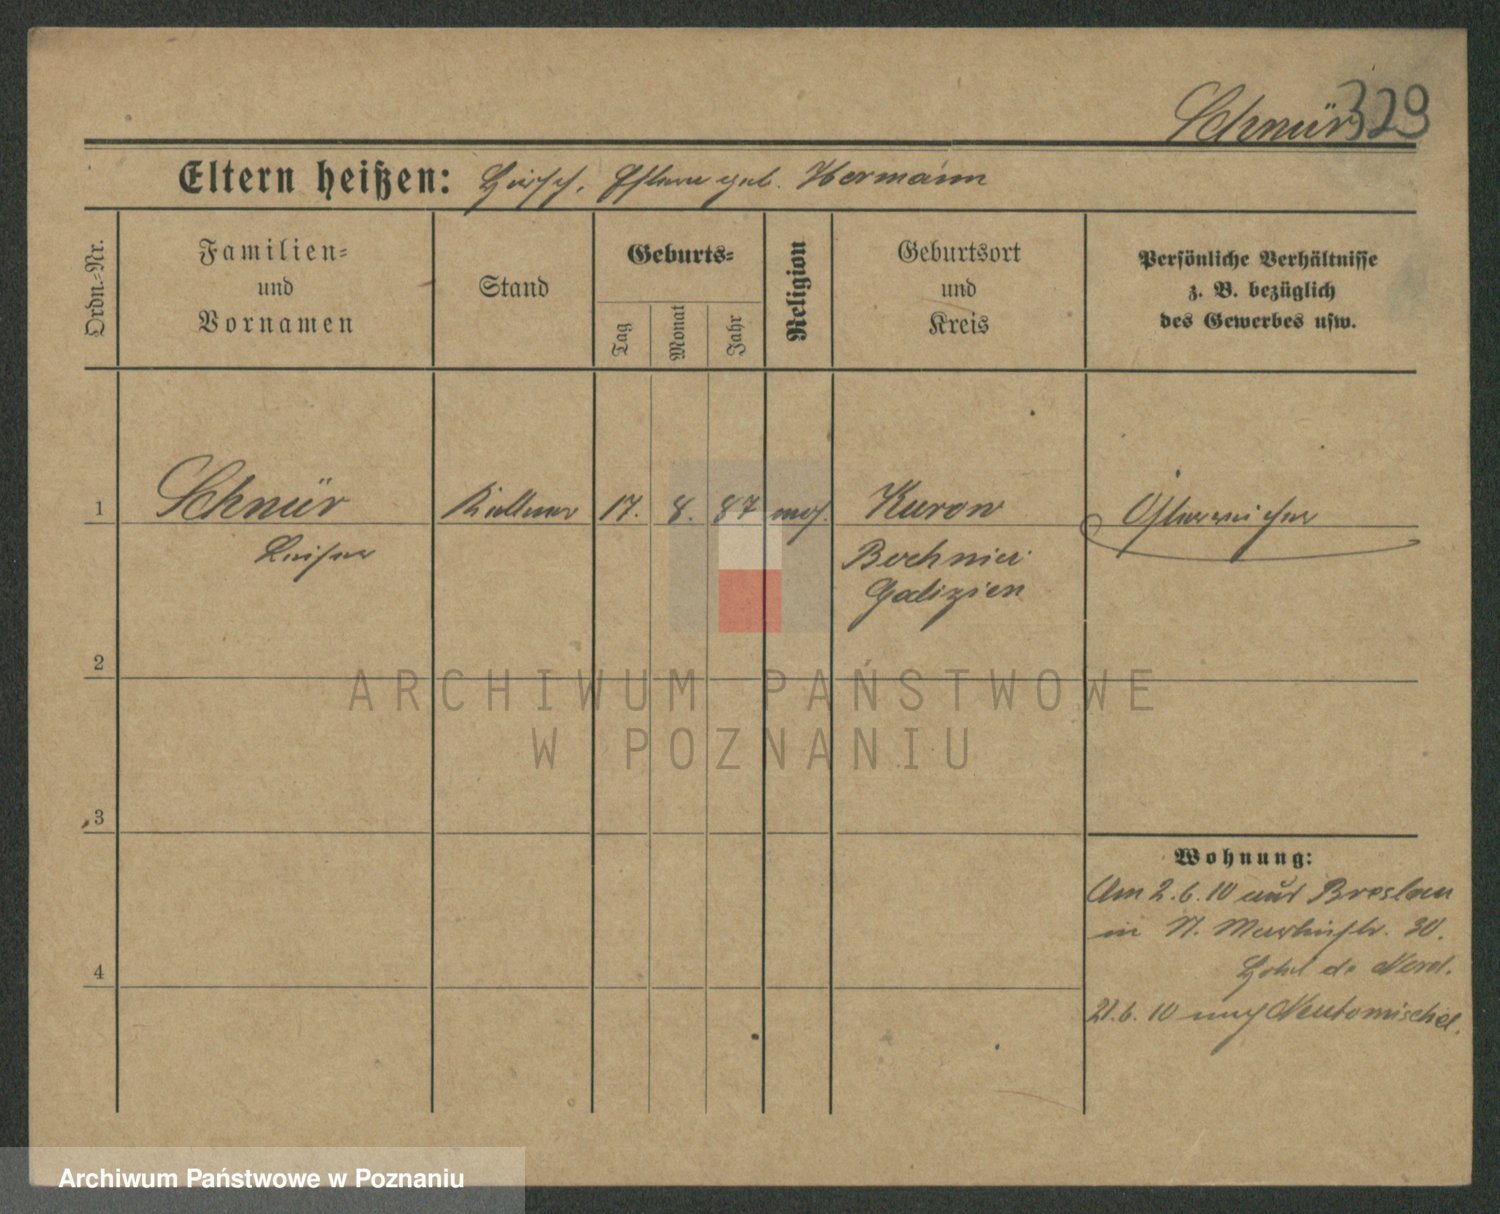 Schnür 329
Eltern heißen: Hirsch, Esther geb. Hermann
Ordn.-Nr.
Familien-
und
Vornamen
Stand
Geburts-
Tag
Monat
Jahr
Religion
Geburtsort
und
Kreis
Persönliche Verhältnisse
z. B. bezüglich
des Gewerbes usw.
1 Schnür Kellner 17. 8. 87 mos. Kurow Österreicher
Leiser Bochnia
Galizien
2
3
4
Wohnung:
Am 2.6.10 aus Breslau
in St. Martinstr. 30.
Hotel de Nord.
21.6.10 nach Neutomischel.
ARCHIWUM PAŃSTWOWE
W POZNANIU
Archiwum Państwowe w Poznaniu